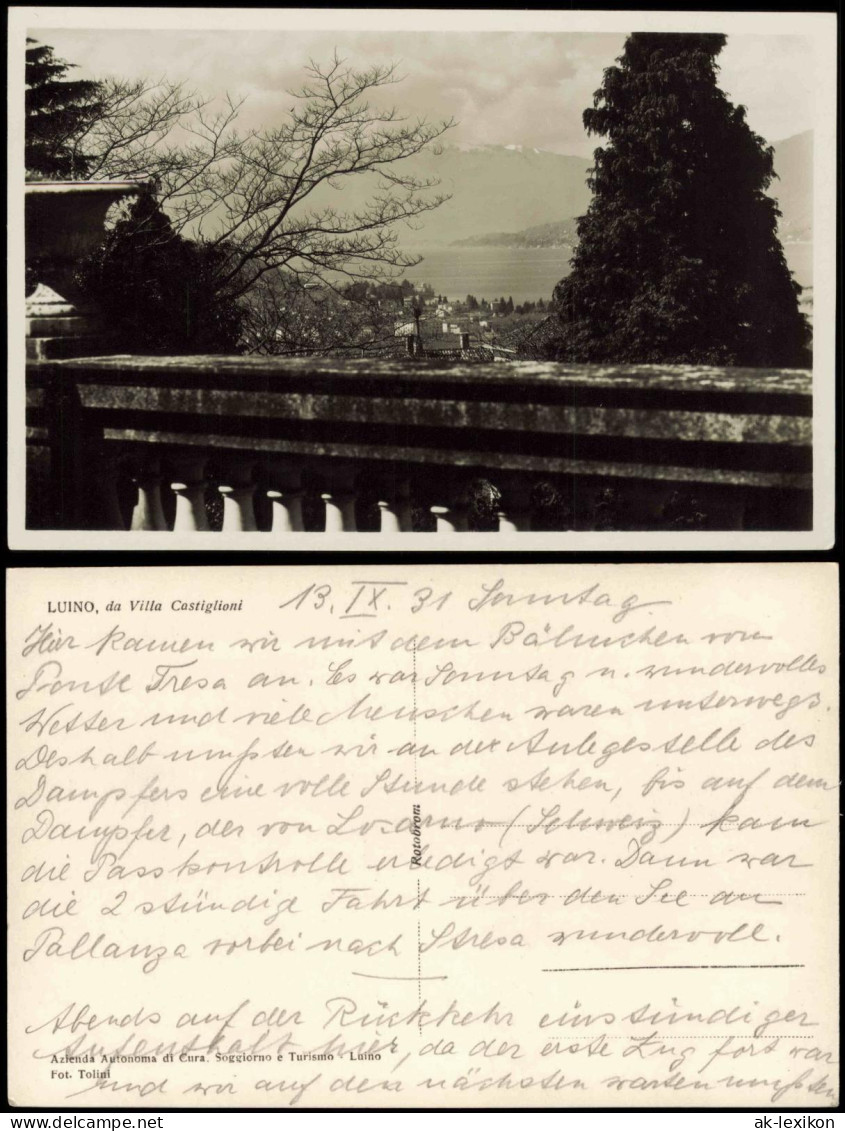 LUINO, da Villa Castiglioni
13. IX. 31 Sonntag.
Hier kamen wir mit dem Bähnchen von
Ponte Tresa an. Es war Sonntag u. wundervolles
Wetter und viele Menschen waren unterwegs.
Deshalb mußten wir an der Anlegestelle des
Dampfers eine volle Stunde stehen, bis auf dem
Dampfer, der von Locarno (Schweiz) kam
die Passkontrolle erledigt war. Dann war
die 2 stündige Fahrt über den See an
Pallanza vorbei nach Stresa wundervoll.
Rotobrom
Abends auf der Rückkehr einstündiger
Aufenthalt hier, da der erste Zug fort war
und wir auf den nächsten warten mußten
Azienda Autonoma di Cura, Soggiorno e Turismo - Luino
Fot. Tolini
www.delcampe.net
ak-lexikon